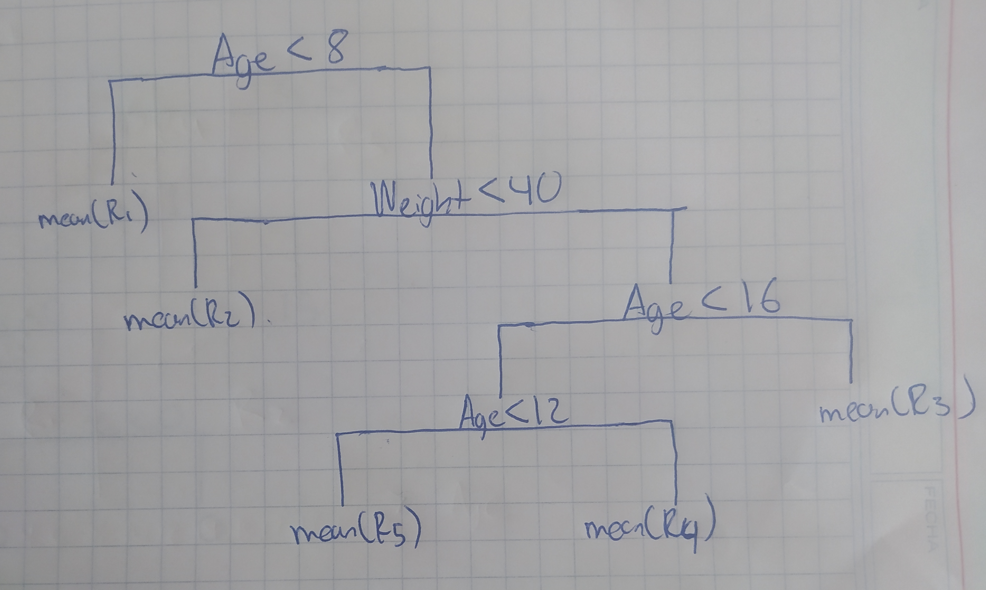 Age < 8
mean(R1)
Weight < 40
mean(R2).
Age < 16
mean(R3)
Age < 12
mean(R5)
mean(R4)
FECHA